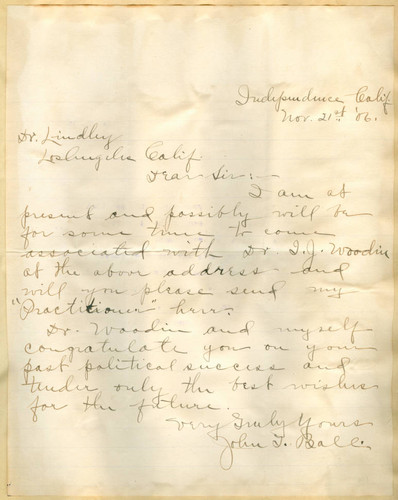 Independence Calif
Nov. 21st '06.
Dr. Lindley
Los Angeles Calif.
Dear Sir:-
I am at
present and possibly will be
for some time to come
associated with Dr I.J. Woodin
at the above address and
will you please send my
"Practitioner" here.
Dr. Woodin and myself
congratulate you on your
past political success and
tender only the best wishes
for the future.
Very Truly Yours
John T. Ball.